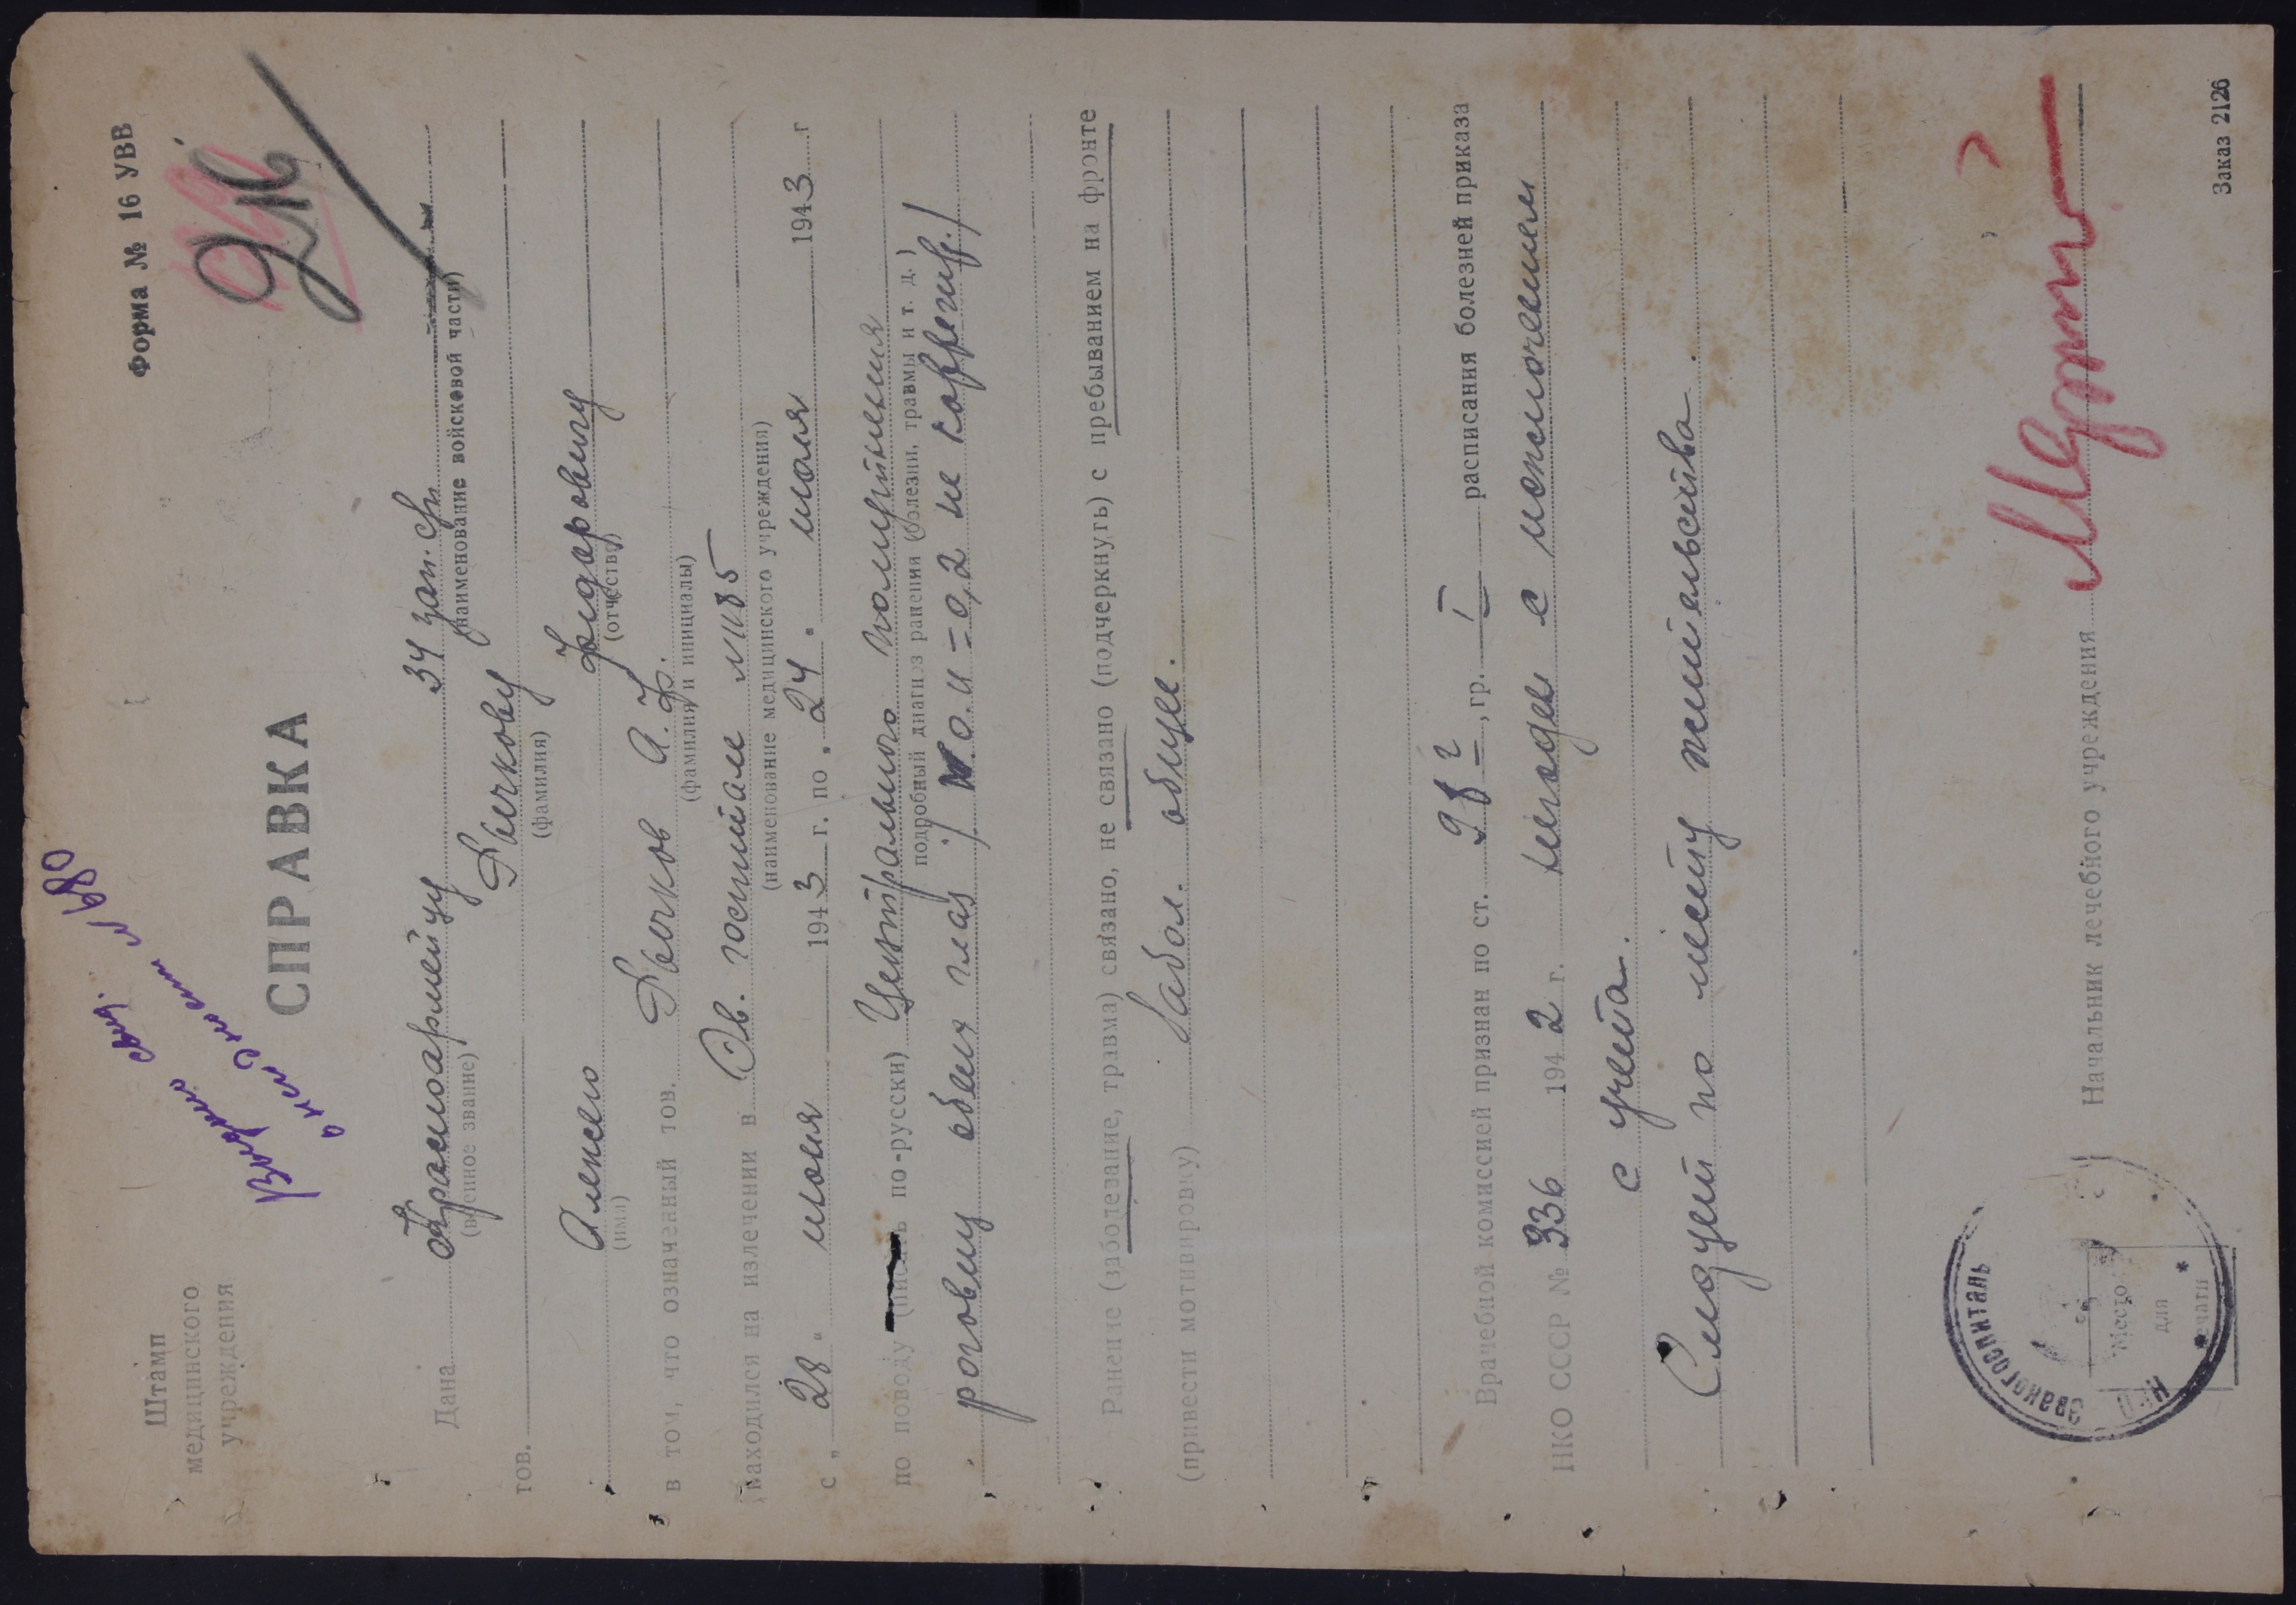 Форма № 16 УВВ
Штамп
медицинского
учреждения
СПРАВКА
Дана Красноармейцу 34 зап. ср
(военное звание) (наименование войсковой части)
тов. Бычкову
(фамилия)
Алексею Фидаровичу
(имя) (отчество)
в том, что означенный тов. Бычков А. Ф.
(фамилия и инициалы)
находился на излечении в Эв. госпитале
(наименование медицинского учреждения)
с „ 28 " июня 1943 г. по „ 24 " июля 1943 г
по поводу по-русски) Центрального помутнения
подробный диагноз ранения (болезни, травмы и т. д.)
роговиц обеих глаз / = 0,2 не корегир. /
Ранение (заболевание, травма) связано, не связано (подчеркнуть) с пребыванием на фронте
(привести мотивировку) Забол. общее.
Врачебной комиссией признан по ст. , гр. I расписания болезней приказа
НКО СССР № 336 1942 г. негоден с исключением
с учета.
Следует по месту жительства.
Начальник лечебного учреждения
эвакогоспиталь
НКО
Место
для
печати
Заказ 2126